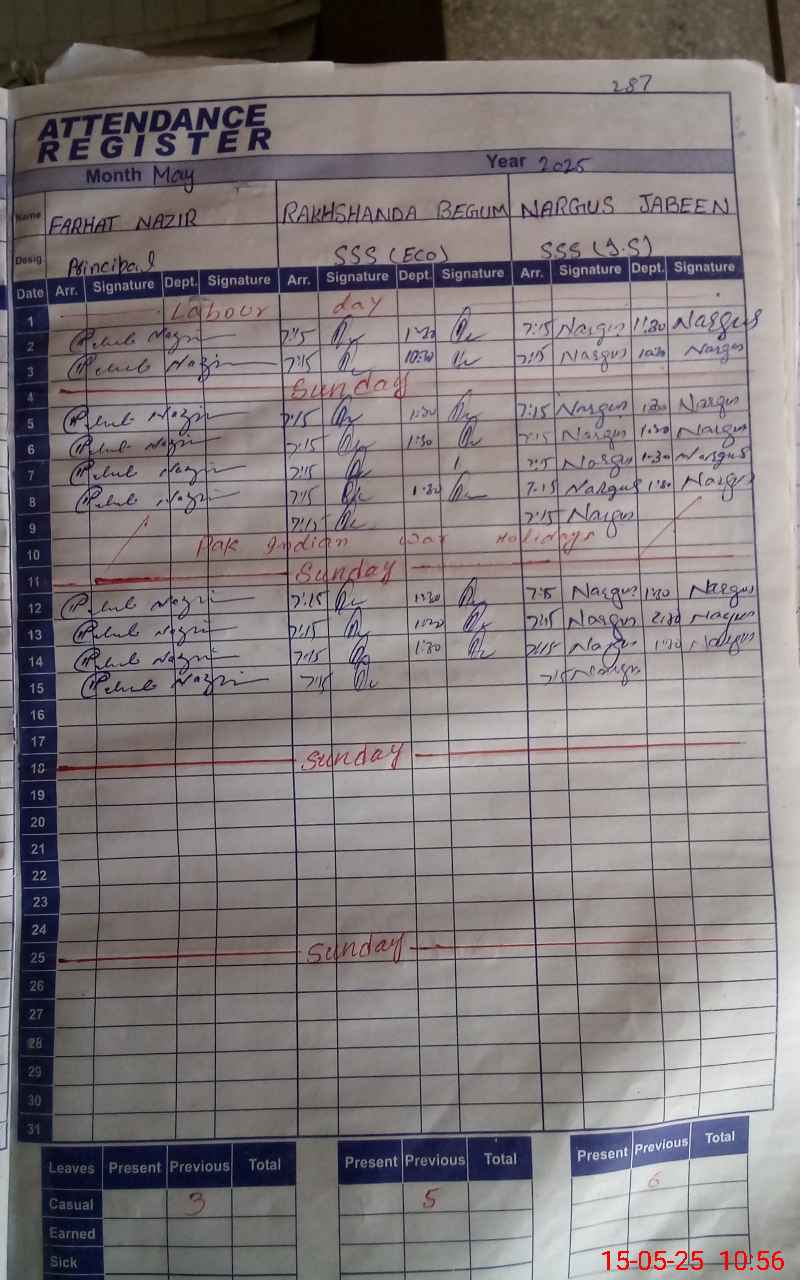 287
ATTENDANCE
REGISTER
Month May Year 2025
Name FARHAT NAZIR RAKHSHANDA BEGUM NARGUS JABEEN
Desig. Principal SSS (Eco) SSS (I.S)
Date Arr. Signature Dept. Signature Arr. Signature Dept. Signature Arr. Signature Dept. Signature
1 Labour day
2 Nazir 7:15 1:30 7:15 Nargus 11:30 Nargus
3 Nazir 7:15 10:30 7:15 Nargus 10:30 Nargus
4 Sunday
5 Nazir 7:15 1:30 7:15 Nargus 1:30 Nargus
6 Nazir 7:15 1:30 7:15 Nargus 1:30 Nargus
7 Nazir 7:15 7:15 Nargus 1:30 Nargus
8 Nazir 7:15 1:30 7:15 Nargus 1:30 Nargus
9 7:15 7:15 Nargus
10 Pak Indian War Holidays
11 Sunday
12 Nazir 7:15 1:30 Nargus 1:30 Nargus
13 Nazir 7:15 7:15 Nargus 2:30 Nargus
14 Nazir 7:15 1:30 7:15 Nargus 1:30 Nargus
15 Nazir 7:15 7:15 Nargus
16
17
18 Sunday
19
20
21
22
23
24
25 Sunday
26
27
28
29
30
31
Leaves Present Previous Total Present Previous Total Present Previous Total
Casual 3 5 6
Earned
Sick
15-05-25 10:56